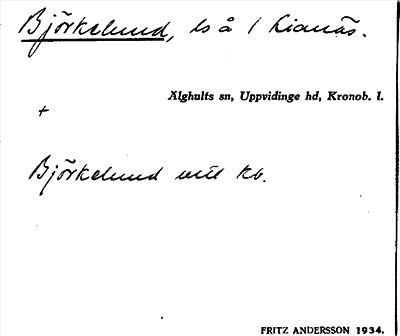 Björkelund, ls å 1 Lianäs.
Älghults sn, Uppvidinge hd, Kronob. l.
+
Björkelund utt kb.
FRITZ ANDERSSON 1934.